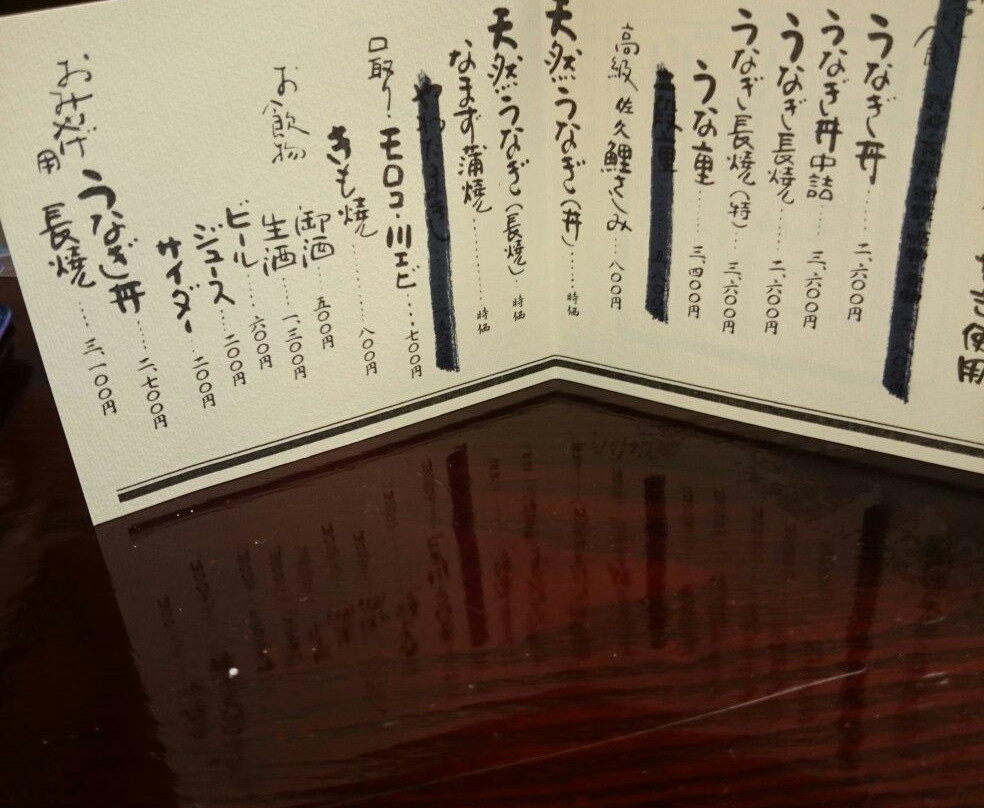 き使用
うなぎ丼……二、六〇〇円
うなぎ丼中詰……三、六〇〇円
うなぎ長焼……二、六〇〇円
うなぎ長焼(特)…三、六〇〇円
うな重……三、四〇〇円
高級 佐久鯉さしみ…八〇〇円
天然うなぎ(丼)……時価
天然うなぎ(長焼)…時価
なまず蒲焼……時価
口取り・モロコ・川エビ…七〇〇円
きも焼……八〇〇円
お飲物
御酒……五〇〇円
生酒……一、三〇〇円
ビール……六〇〇円
ジュース……二〇〇円
サイダー……二〇〇円
おみやげ用
うなぎ丼……二、七〇〇円
長焼……三、一〇〇円